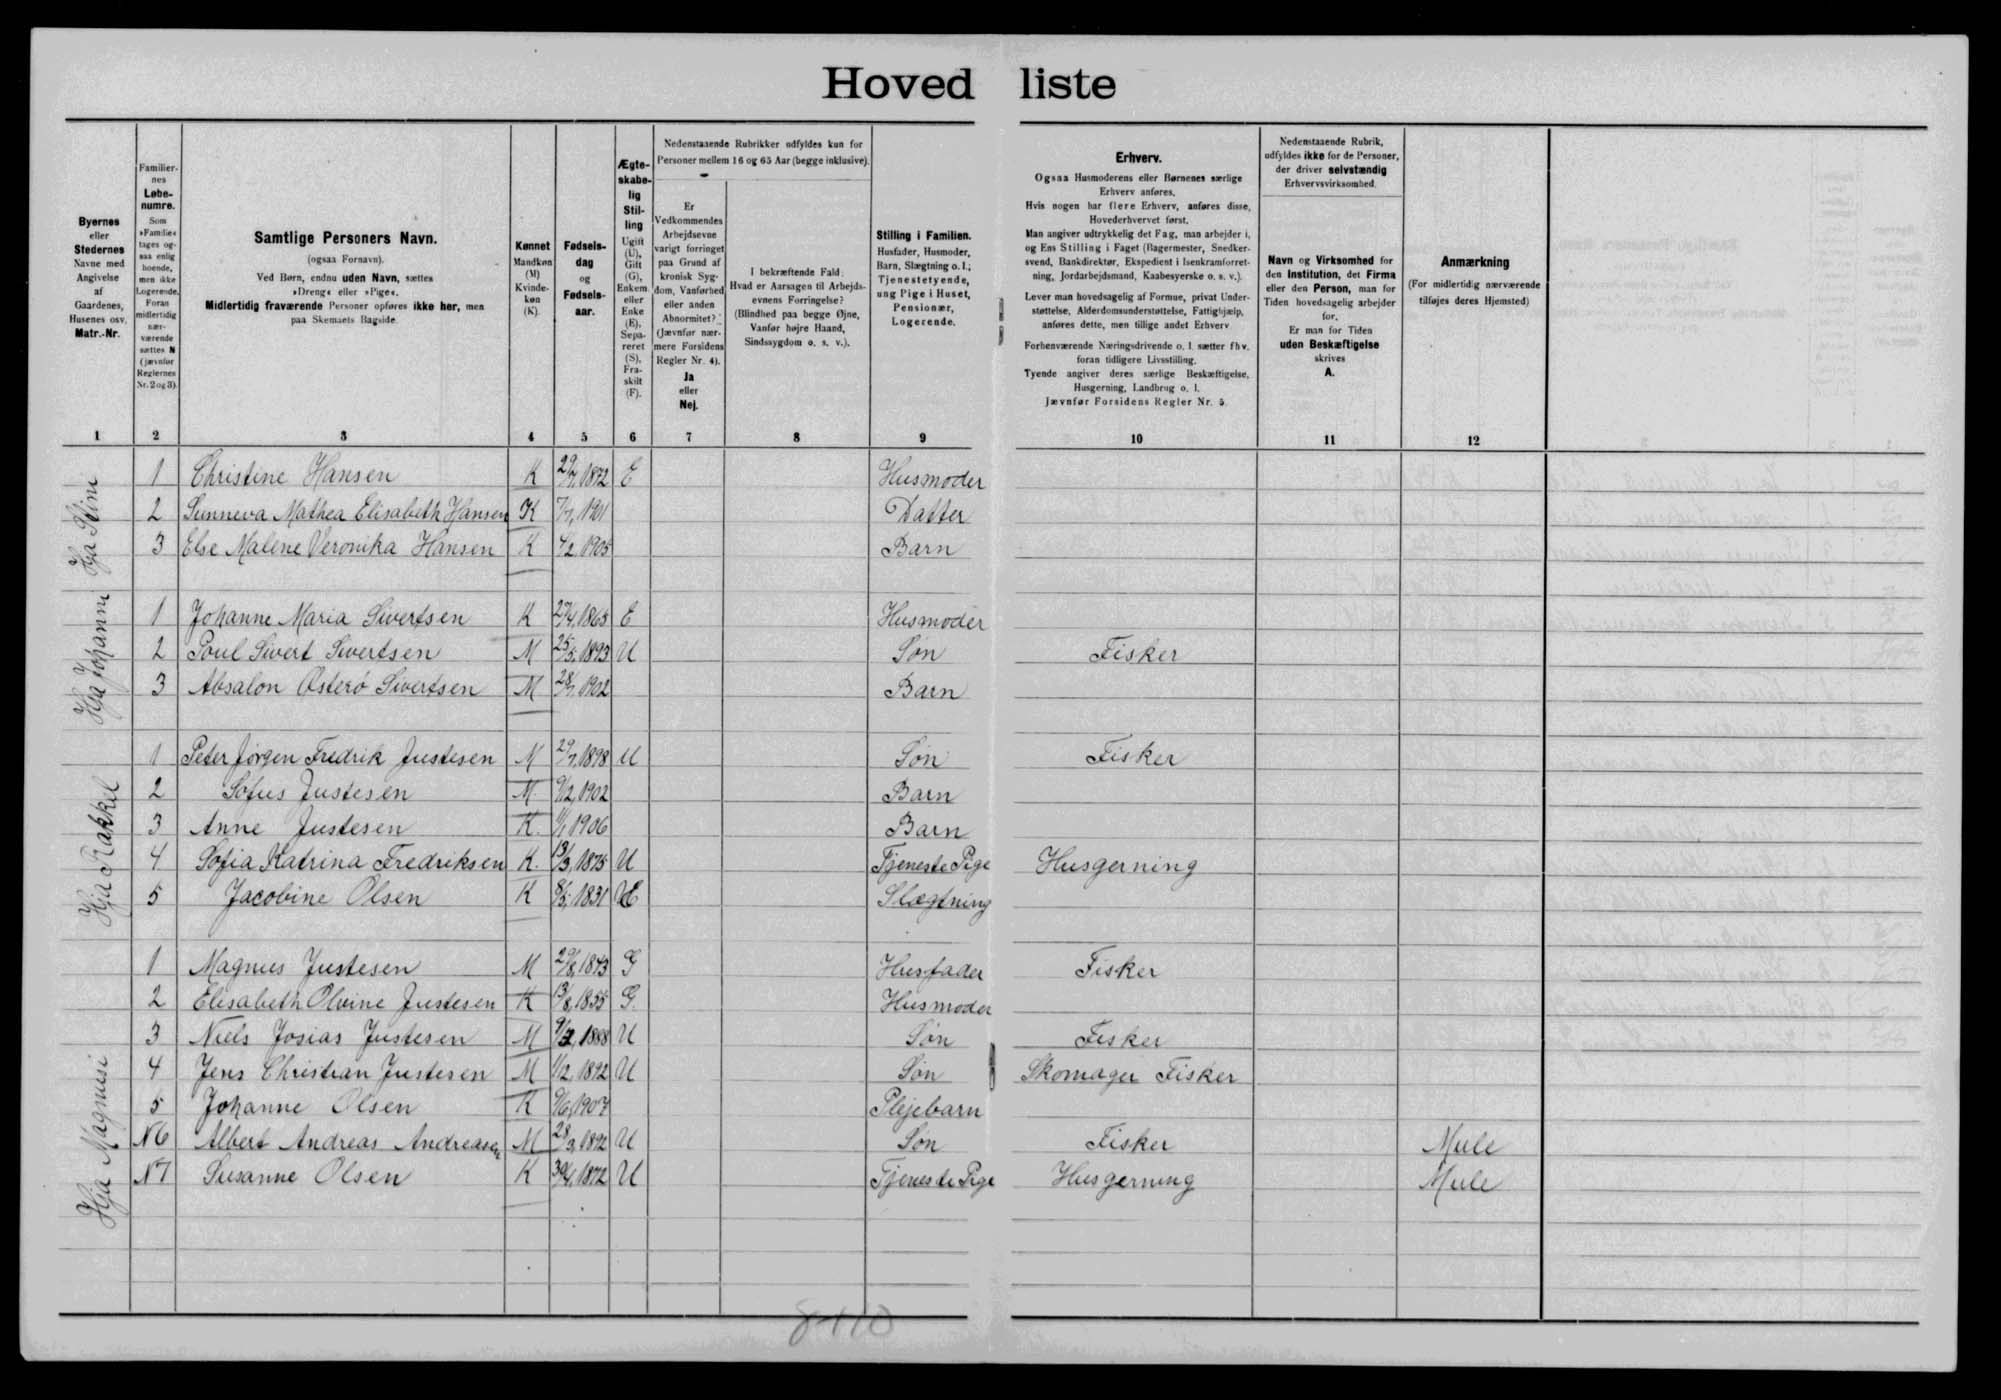 Hovedliste
Byernes
eller
Stedernes
Navne med
Angivelse
af
Gaardenes,
Husenes osv.
Matr.-Nr.
Familier-
nes
Løbe-
numre.
Som
»Familie«
tages og-
saa enlig
boende,
men ikke
Logerende.
Foran
midlertidig
nær-
værende
sættes N
(jævnfør
Reglernes
Nr. 2 og 3).
Samtlige Personers Navn.
(ogsaa Fornavn).
Ved Børn, endnu uden Navn, sættes
»Dreng« eller »Pige«.
Midlertidig fraværende Personer opføres ikke her, men
paa Skemaets Bagside.
Kønnet
Mandkøn
(M)
Kvinde-
køn
(K).
Fødsels-
dag
og
Fødsels-
aar.
Ægte-
skabe-
lig
Stil-
ling
Ugift
(U),
Gift
(G),
Enkem.
eller
Enke
(E),
Sepa-
reret
(S),
Fra-
skilt
(F).
Nedenstaaende Rubrikker udfyldes kun for
Personer mellem 16 og 65 Aar (begge inklusive).
Er
Vedkommendes
Arbejdsevne
varigt forringet
paa Grund af
kronisk Syg-
dom, Vanførhed
eller anden
Abnormitet?
(Jævnfør nær-
mere Forsidens
Regler Nr. 4).
Ja
eller
Nej.
I bekræftende Fald:
Hvad er Aarsagen til Arbejds-
evnens Forringelse?
(Blindhed paa begge Øjne,
Vanfør højre Haand,
Sindssygdom o. s. v.).
Stilling i Familien.
Husfader, Husmoder,
Barn, Slægtning o. l.;
Tjenestetyende,
ung Pige i Huset,
Pensionær,
Logerende.
Erhverv.
Ogsaa Husmoderens eller Børnenes særlige
Erhverv anføres.
Hvis nogen har flere Erhverv, anføres disse,
Hovederhvervet først.
Man angiver udtrykkelig det Fag, man arbejder i,
og Ens Stilling i Faget (Bagermester, Snedker-
svend, Bankdirektør, Ekspedient i Isenkramforret-
ning, Jordarbejdsmand, Kaabesyerske o. s. v.).
Lever man hovedsagelig af Formue, privat Under-
støttelse, Alderdomsunderstøttelse, Fattighjælp,
anføres dette, men tillige andet Erhverv
Forhenværende Næringsdrivende o. l. sætter fhv.
foran tidligere Livsstilling.
Tyende angiver deres særlige Beskæftigelse,
Husgerning, Landbrug o. l.
Jævnfør Forsidens Regler Nr. 5.
Nedenstaaende Rubrik,
udfyldes ikke for de Personer,
der driver selvstændig
Erhvervsvirksomhed.
Navn og Virksomhed for
den Institution, det Firma
eller den Person, man for
Tiden hovedsagelig arbejder
for.
Er man for Tiden
uden Beskæftigelse
skrives
A.
Anmærkning
(For midlertidig nærværende
tilføjes deres Hjemsted)
1 2 3 4 5 6 7 8 9 10 11 12
Hja Stini
1 Christine Hansen K 29/7 1872 E Husmoder
2 Sunneva Mathea Elisabeth Hansen K 7/7 1901 Datter
3 Else Malene Veronika Hansen K 4/2 1905 Barn
Hja Johanni
1 Johanne Maria Sivertsen K 27/4 1865 E Husmoder
2 Poul Sivert Sivertsen M 25/5 1893 U Søn Fisker
3 Absalon Østerø Sivertsen M 28/7 1902 Barn
Hja Rakkel
1 Peter Jørgen Fredrik Justesen M 29/7 1898 U Søn Fisker
2 Sofus Justesen M. 9/12 1902 Barn
3 Anne Justesen K. 1/1 1906 Barn
4 Sofia Katrina Fredriksen K. 13/3 1875 U Tjeneste Pige Husgerning
5 Jacobine Olsen K 8/5 1831 E Slægtning
Hja Magnusi
1 Magnus Justesen M 29/8 1843 G Husfader Fisker
2 Elisabeth Olvine Justesen K 13/8 1855 G. Husmoder
3 Niels Josias Justesen M 1888 U Søn Fisker
4 Jens Christian Justesen M 1/12 1892 U Søn Skomager Fisker
5 Johanne Olsen K 9/6 1907 Plejebarn
N6 Albert Andreas Andreasen M 28/3 1892 U Søn Fisker Mule
N7 Susanne Olsen K 30/1 1872 U Tjeneste Pige Husgerning Mule
8+10